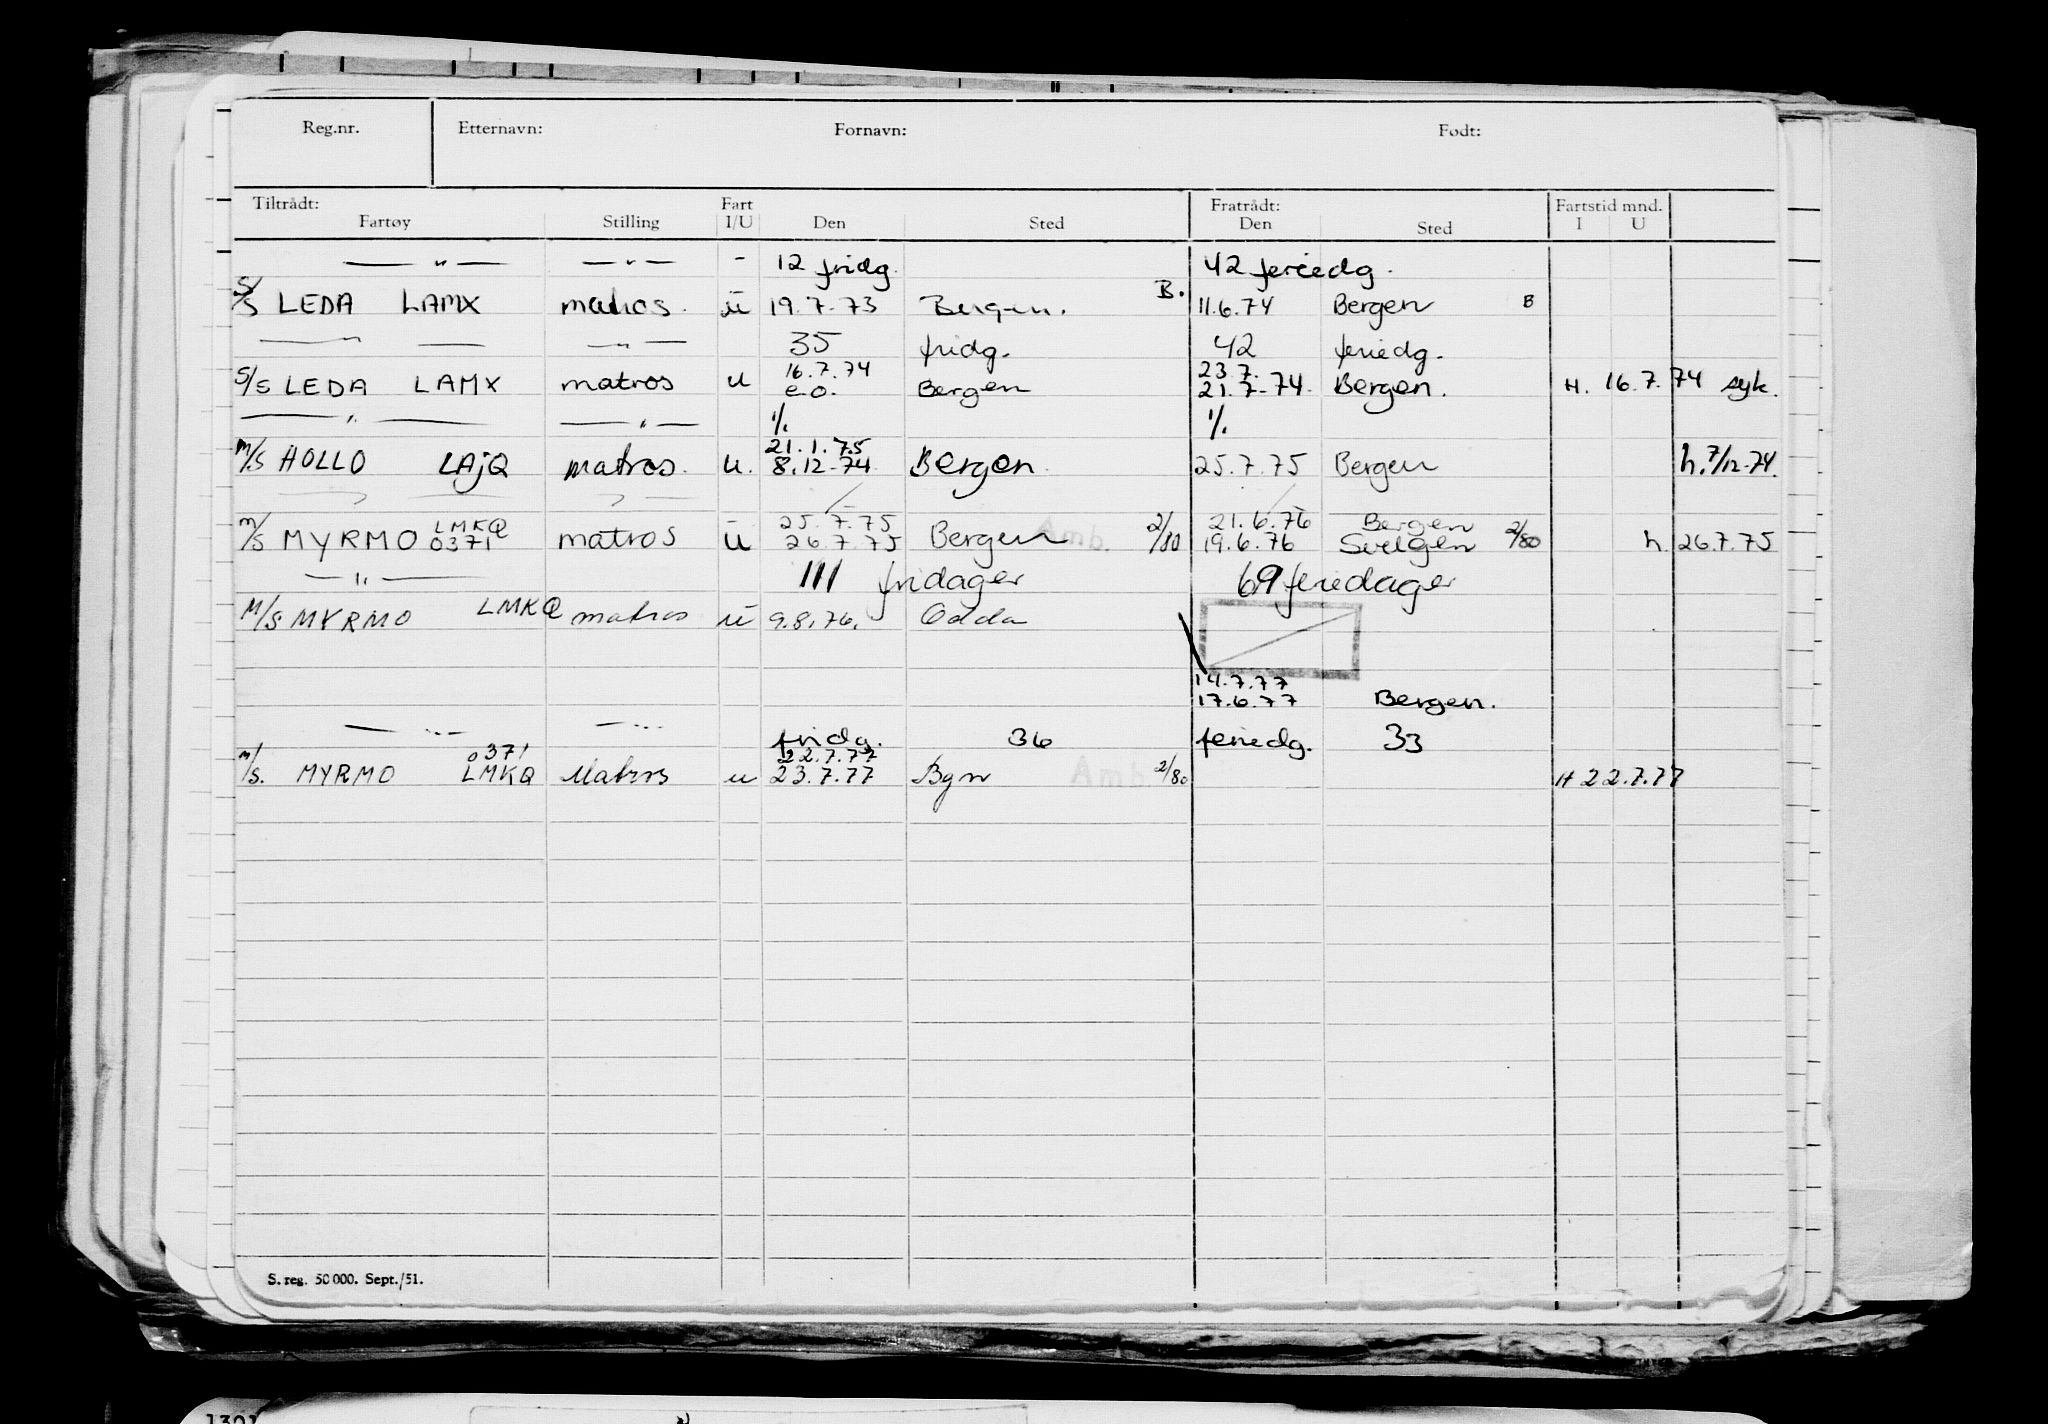 Reg.nr. Etternavn: Fornavn: Født:
Tiltrådt: Fart Fratrådt: Fartstid mnd.
Fartøy Stilling I/U Den Sted Den Sted I U
— " — — " — - 12 fridg. 42 feriedg.
S/S LEDA LAMX matros. u 19.7.73 Bergen. B. 11.6.74 Bergen B
— " — 35 fridg. 42 feriedg.
16.7.74 23.7.
S/S LEDA LAMX matros u e.o. Bergen 21.7-74 Bergen. H. 16.7.74 syk.
— " — — " — 1/. 1/.
21.1.75
M/S HOLLO LAJQ matros. u. 8.12-74 Bergen 25.7.75 Bergen h. 7/12-74.
LMKQ 25.7.75 21.6.76 Bergen
M/S MYRMO 0371 matros u 26.7.75 Bergen Amb. 2/80 19.6.76 Svelgen 2/80 h. 26.7.75
— " — 111 fridager 69 feriedager
M/S MYRMO LMKQ matros u 9.8.76. Odda
14.7.77
17.6.77 Bergen.
— " — — " — fridg. 36 feriedg. 33
0371 22.7.77
M/S. MYRMO LMKQ Matros u 23.7.77 Bgn Amb. 2/80 H 22.7.77
S. reg. 50 000. Sept./51.